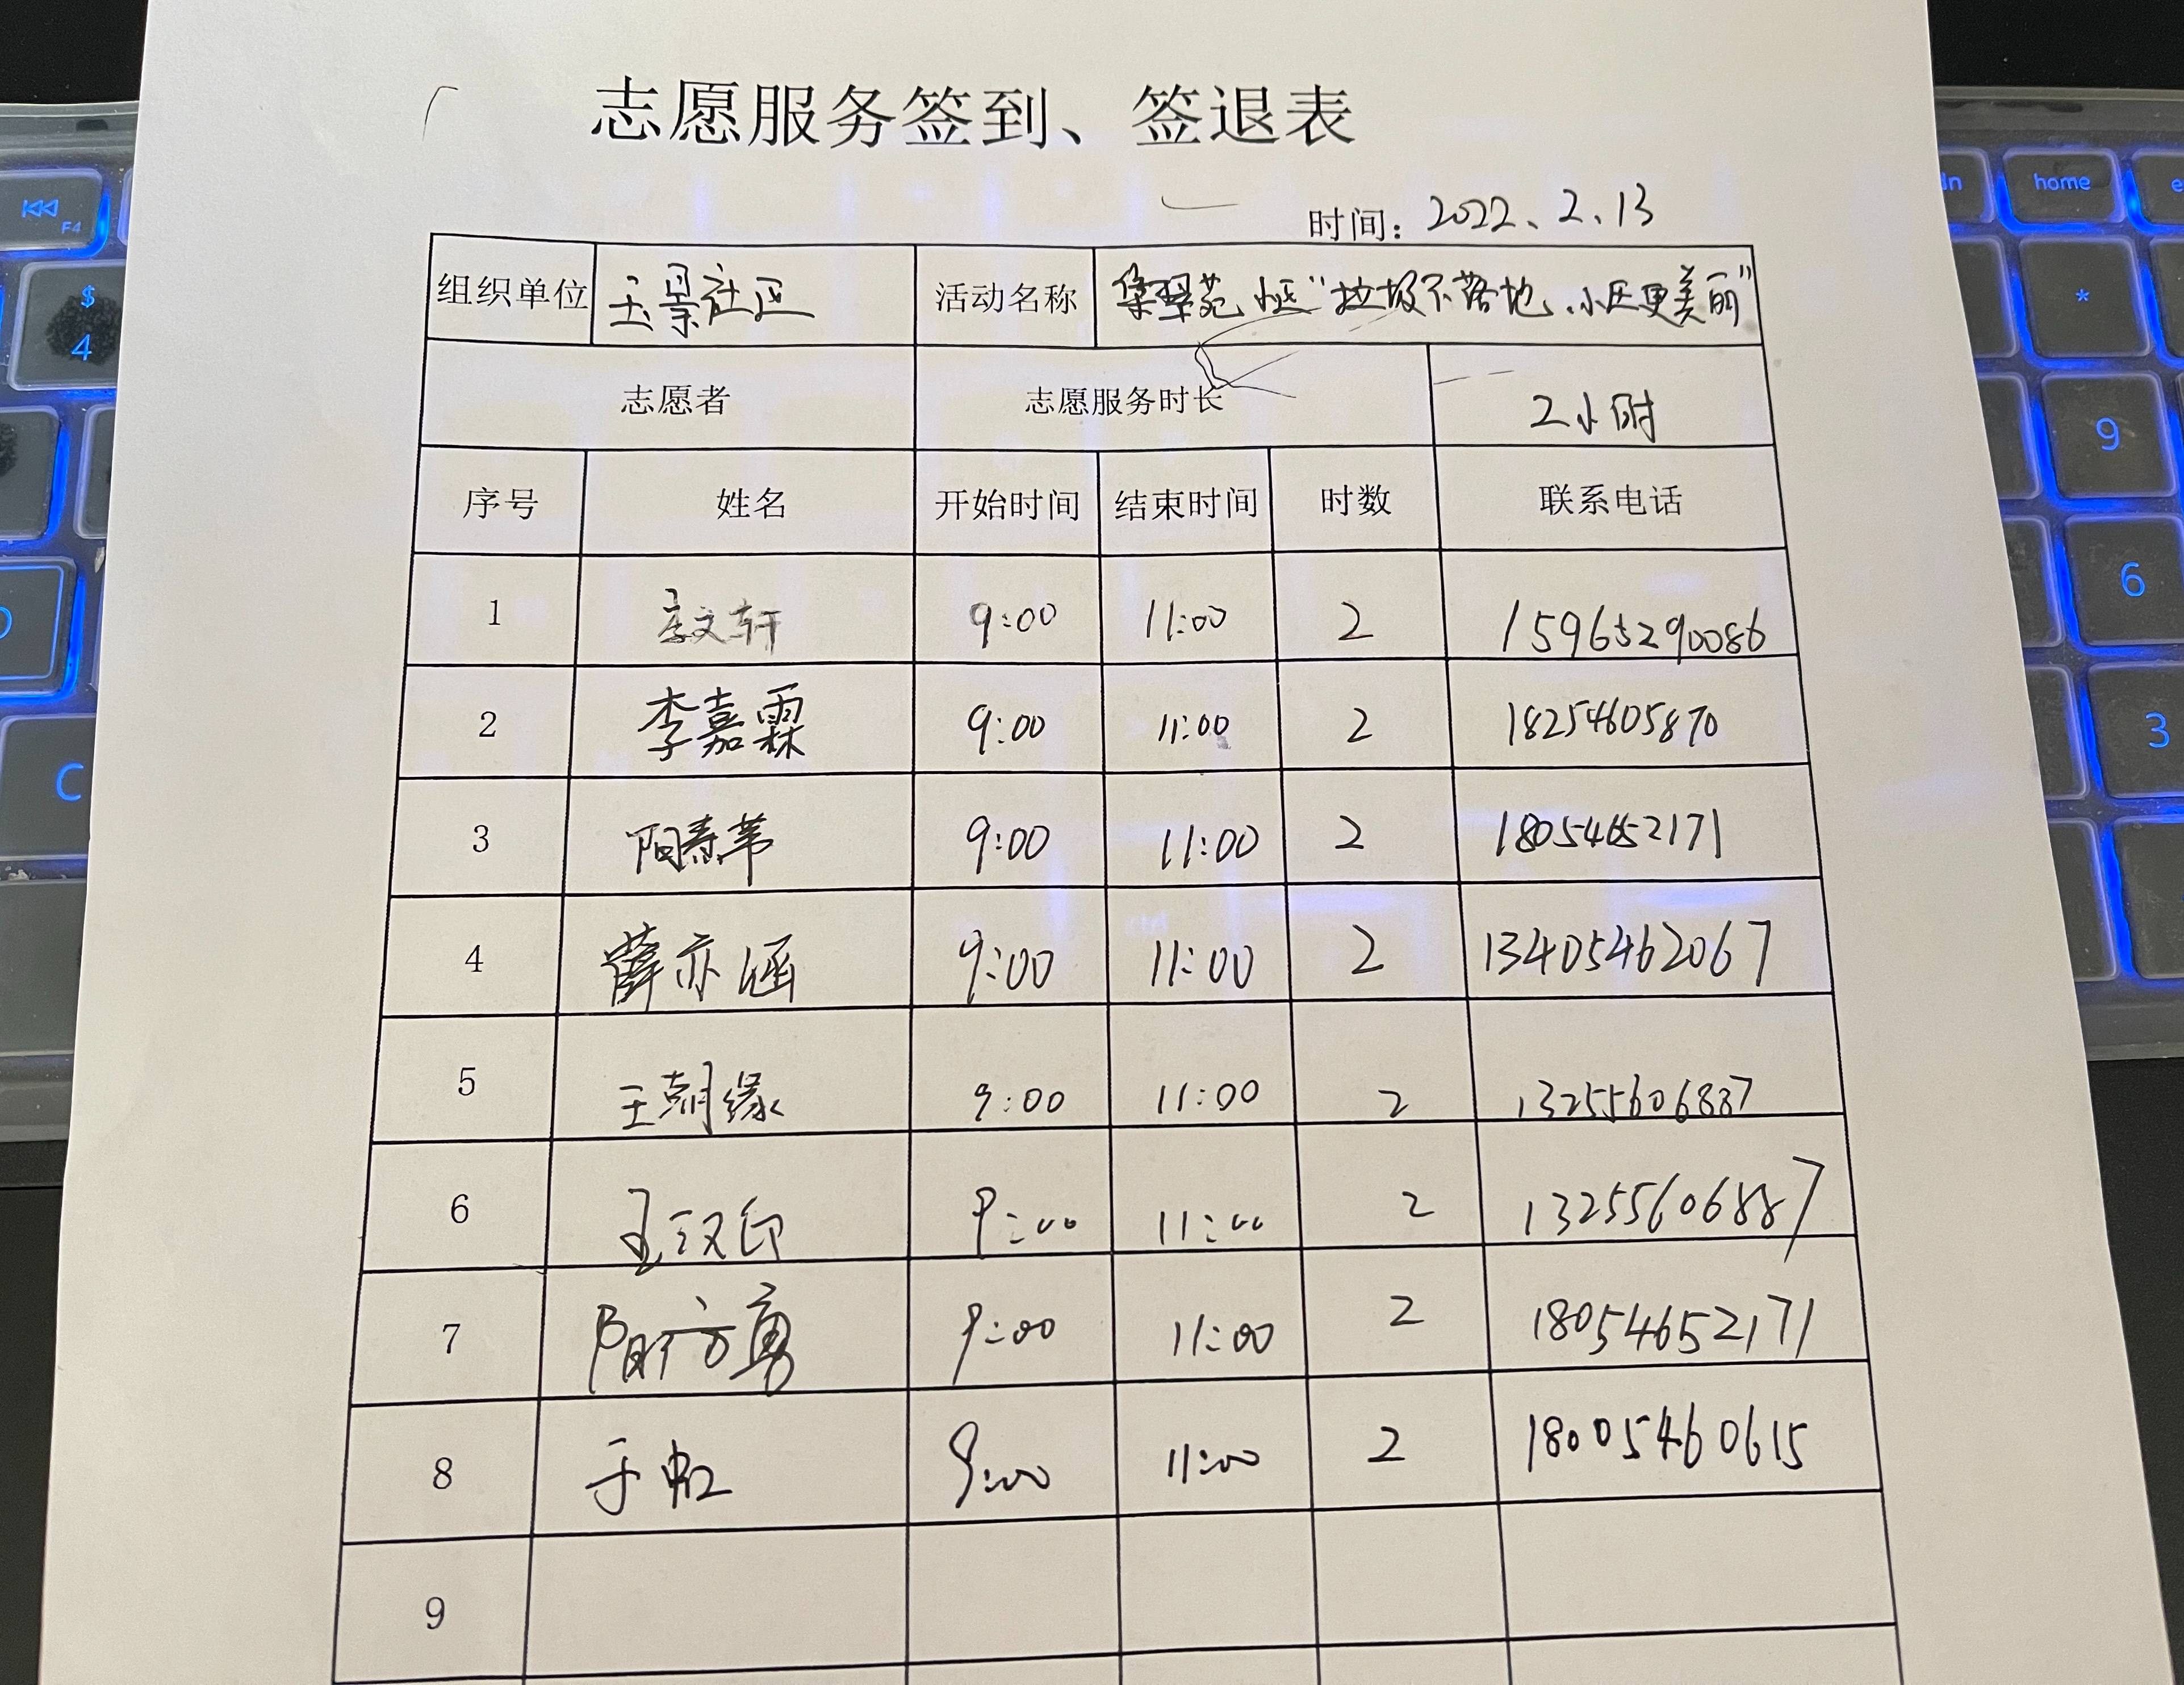 志愿服务签到、签退表
时间: 2022、2、13
组织单位 玉景社区 活动名称 集翠苑小区“垃圾不落地、小区更美丽”
志愿者 志愿服务时长 2小时
序号 姓名 开始时间 结束时间 时数 联系电话
1 文轩 9:00 11:00 2 15965290086
2 李嘉霖 9:00 11:00 2 18254605870
3 阳 9:00 11:00 2 18054652171
4 薛亦涵 9:00 11:00 2 13405462067
5 王朝缘 9:00 11:00 2 13255606887
6 9:00 11:00 2 13255606887
7 阳方勇 9:00 11:00 2 18054652171
8 于虹 9:00 11:00 2 18005460615
9
F4
$
4
C
home
*
9
6
3